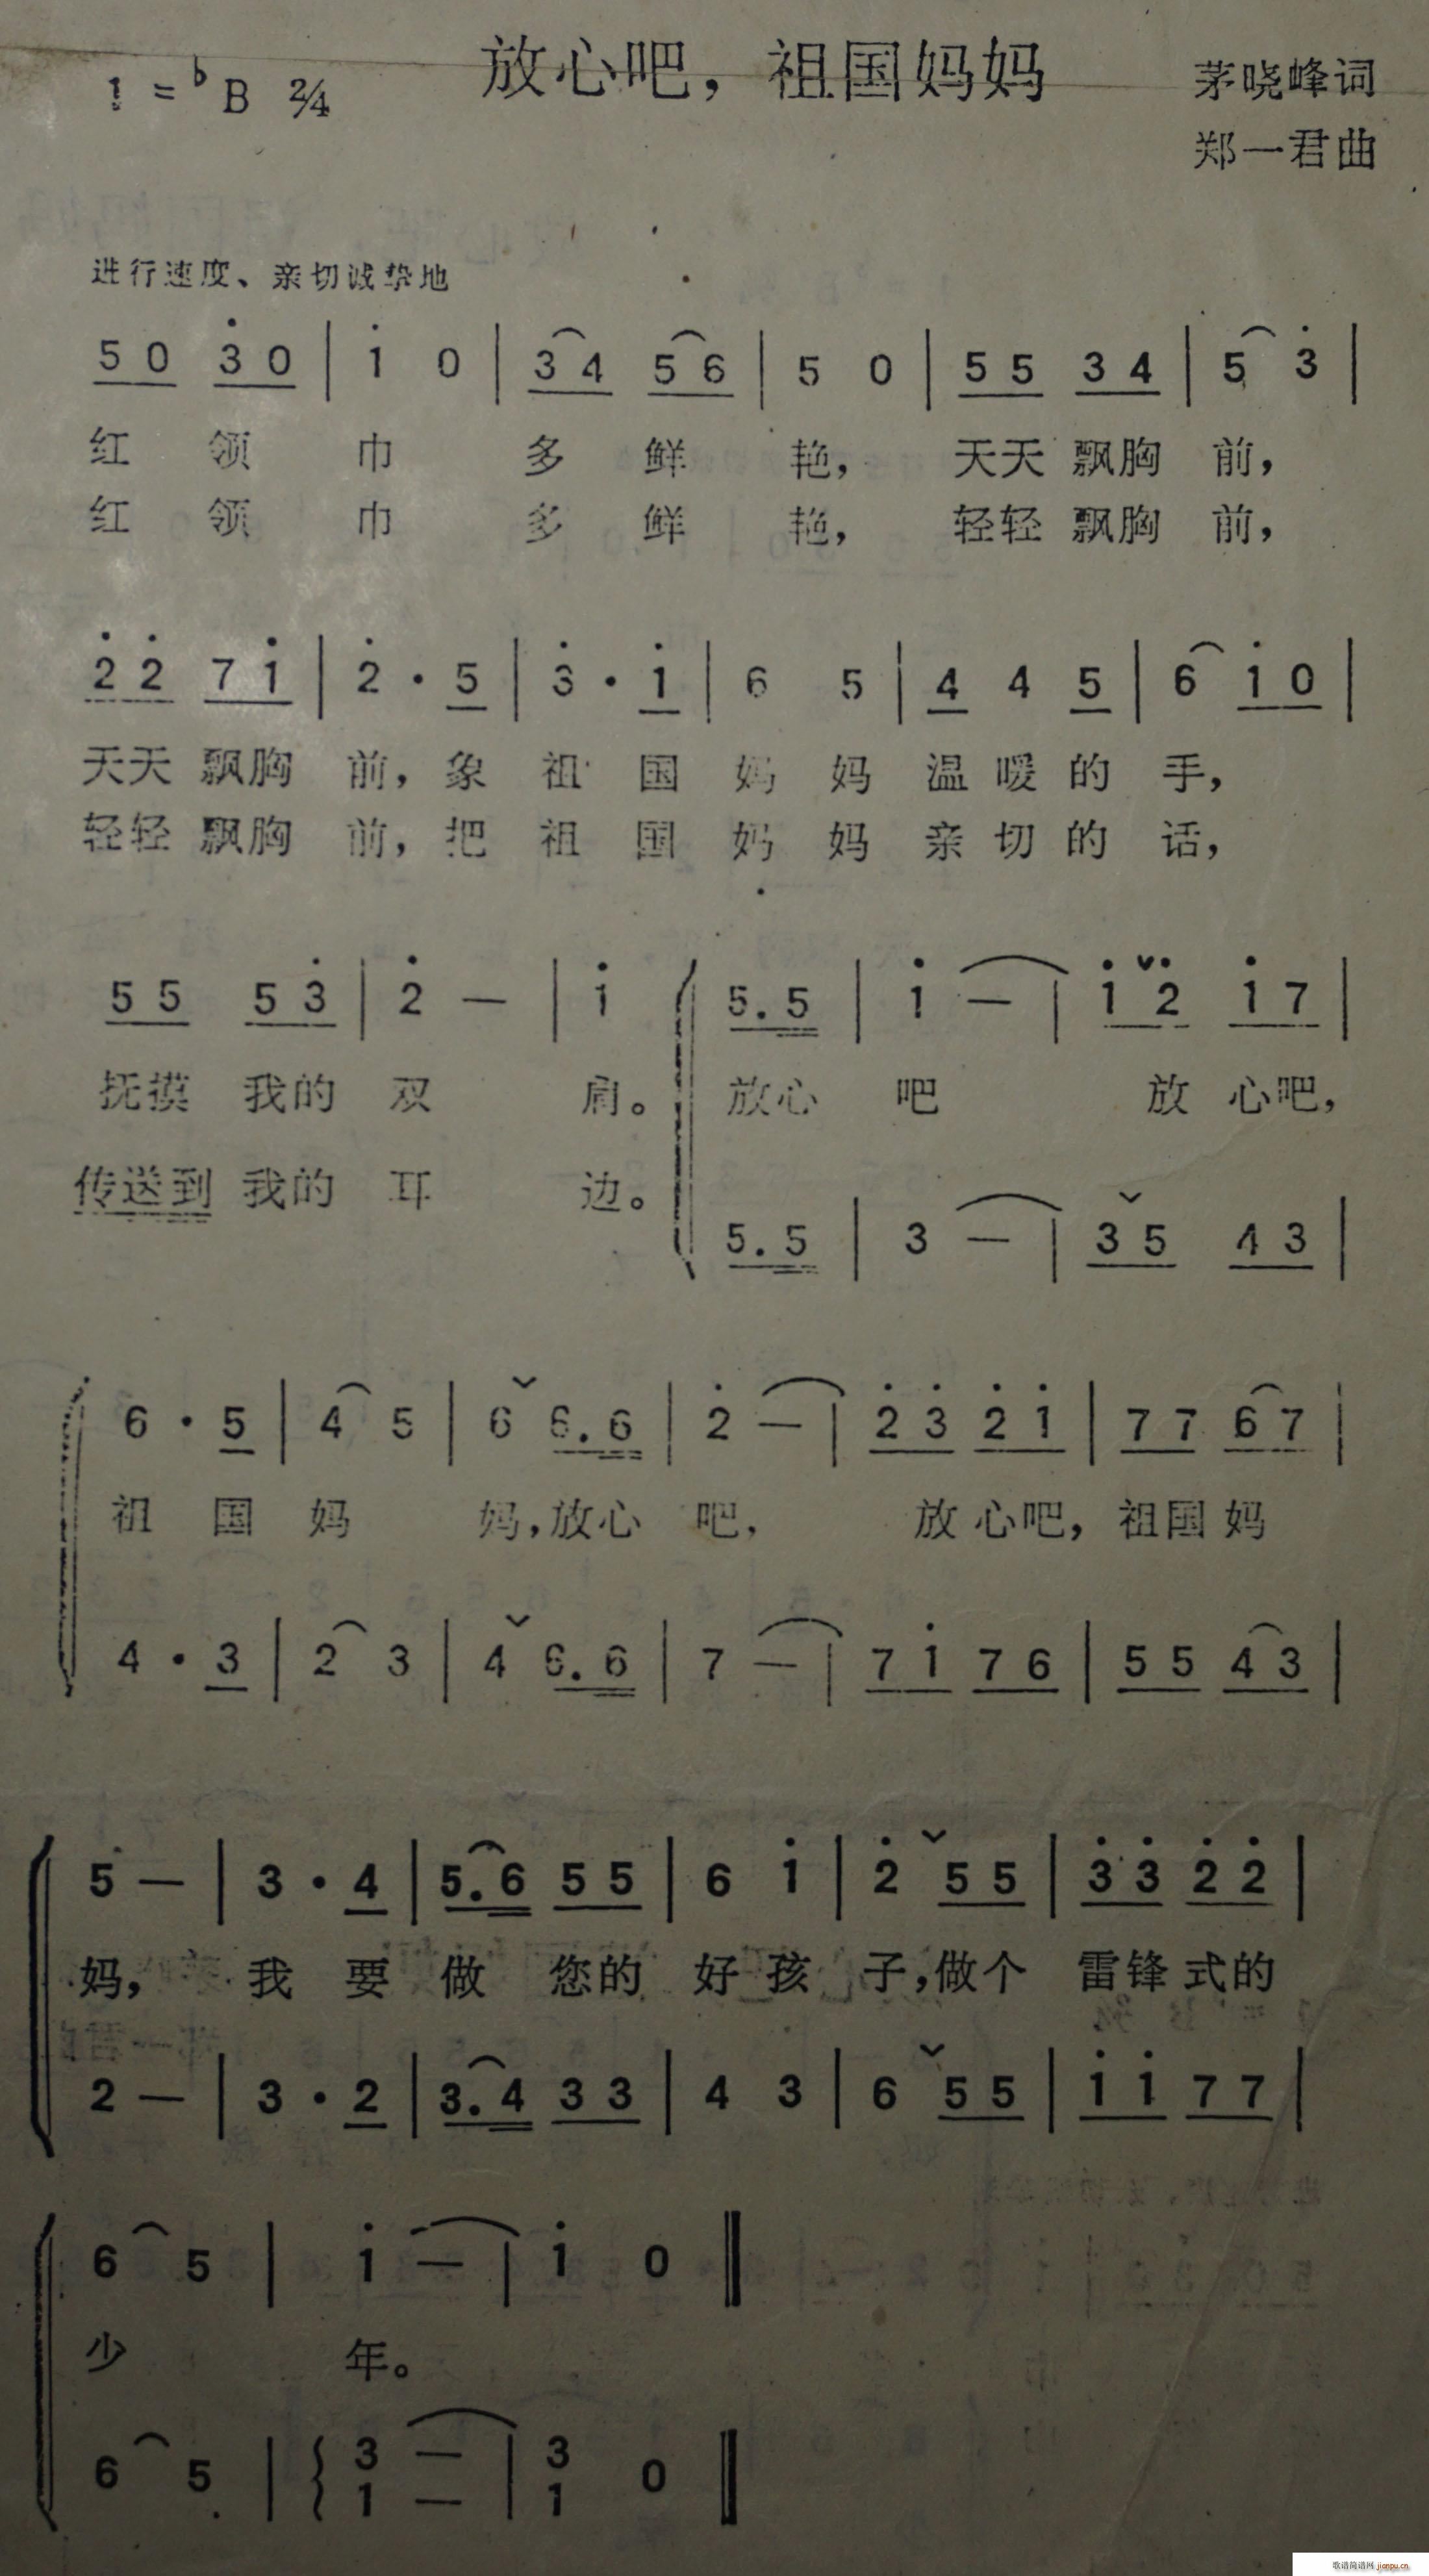 放心吧，祖国妈妈
1 = ♭B 2/4
茅晓峰词
郑一君曲
进行速度、亲切诚挚地
5 0 3̇ 0 | 1̇ 0 | 3 4 5 6 | 5 0 | 5 5 3 4 | 5 3̇ |
红 领 巾 多 鲜 艳， 天天 飘胸 前，
红 领 巾 多 鲜 艳， 轻轻 飘胸 前，
2̇ 2̇ 7 1̇ | 2̇ · 5 | 3̇ · 1̇ | 6 5 | 4 4 5 | 6 1̇ 0 |
天天 飘胸 前，象 祖 国 妈 妈 温 暖 的 手，
轻轻 飘胸 前，把 祖 国 妈 妈 亲 切 的 话，
5 5 5 3̇ | 2̇ — | 1̇ 5. 5 | 1̇ — | 1̇ 2̇ 1̇ 7 |
抚摸 我的 双 肩。 放心 吧 放 心吧，
传送到 我的 耳 边。
5. 5 | 3 — | 3 5 4 3 |
6 · 5 | 4 5 | 6 6. 6 | 2̇ — | 2̇ 3̇ 2̇ 1̇ | 7 7 6 7 |
祖 国 妈 妈，放心 吧， 放 心吧，祖国 妈
4 · 3 | 2 3 | 4 6. 6 | 7 — | 7 1̇ 7 6 | 5 5 4 3 |
5 — | 3 · 4 | 5. 6 5 5 | 6 1̇ | 2̇ 5 5 | 3̇ 3̇ 2̇ 2̇ |
妈， 我 要 做 您的 好 孩 子，做个 雷锋 式的
2 — | 3 · 2 | 3. 4 3 3 | 4 3 | 6 5 5 | 1̇ 1̇ 7 7 |
6 5 | 1̇ — | 1̇ 0 ‖
少 年。
6 5 | 3 — | 3 0 ‖
1 — 1
歌谱简谱网 jianpu.cn